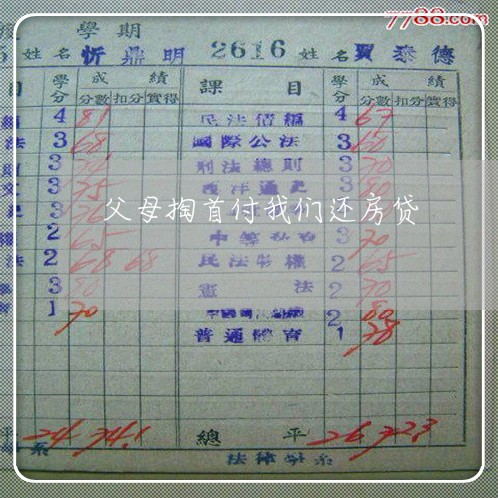 7788.com
學期
5 姓名 忻鼎明 2616 姓名 賈泰德
目 學分 成績 課目 學分 成績
分數 扣分 實得 分數 扣分 實得
4 81 民法債編 4 67
法 3 68 國際公法 3 60
3 刑法總則 3 70
3 75 西洋通史 3
3
父母掏首付我们还房贷
2 65 3 70
法 2 68 68 民法物權 2 65
3 80 憲法 2 70
1 70 2 80
普通體育 1 78
平 24 74.1 總平 26 72.3
系 法律學系